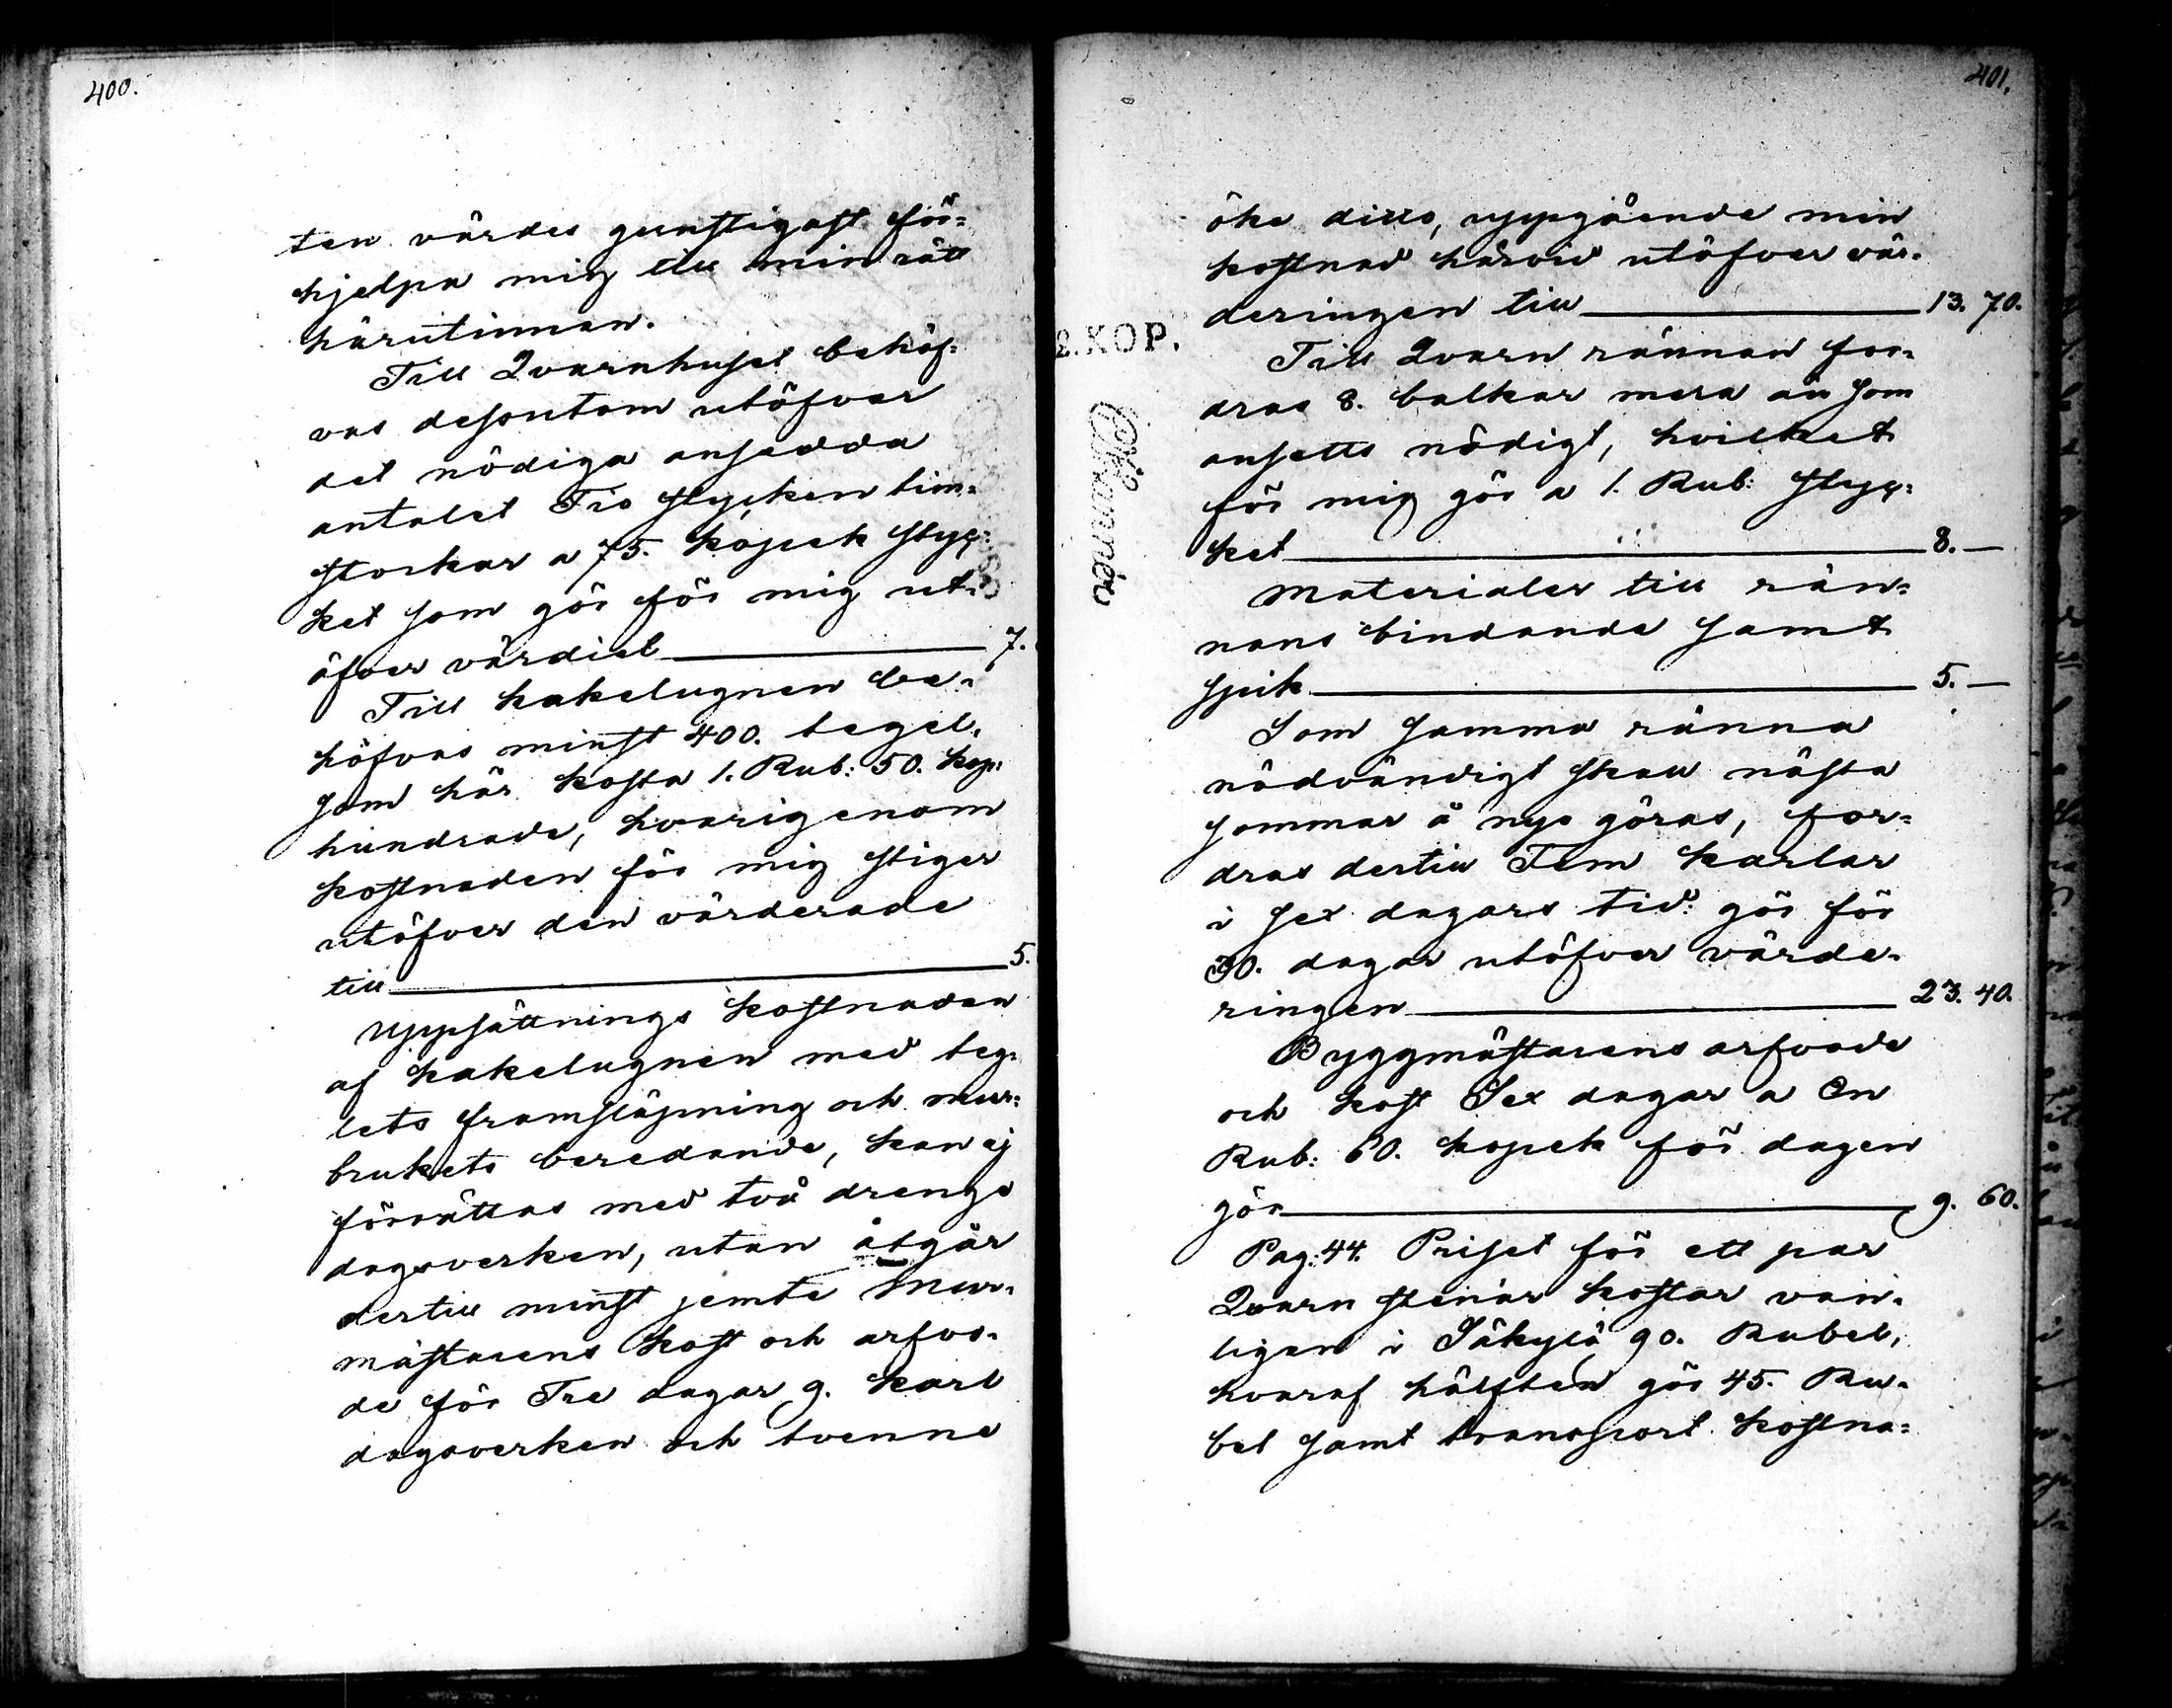 400.
ten värdes gunstigast för=
hjelpa mig till min rätt
härutinnan.
Till Qvarnhuset behöf=
vas dessutom utöfver
det nödiga ansedda
antalet Tio stycken tim=
stockar a 75. kopek styc=
ket som gör för mig ut=
öfver värdiet 7.
Till kakelugnen be=
höfvas minst 400. tegel,
som här kosta 1. Rub: 50. kop:
hundrade, hvarigenom
kostnaden för mig stiger
utöfver den värderade
till 5.
Uppsättnings kostnaden
af kakelugnen med teg=
lets framsläpning och mur=
brukets beredande, kan ej
förrättas med två drengs
dagsverken, utan åtgår
dertill minst jemte Mur=
mästarens kost och arfvo=
de för Tre dagar 9. karl
dagsverken och tvenne
401.
öke ditto, uppgående min
kostnad härvid utöfver vär=
deringen till 13. 70.
2. KOP.
Till Qvarn rännan for=
dras 8. balkar mera än som
ansetts nödigt, hvilket
för mig gör a 1. Rub: styc=
ket 8. —
Materialer till rän=
nans bindande samt
spik 5. —
Som samma ränna
nödvändigt skall nästa
sommar å nyo göras, for=
dras dertill Fem karlar
i sex dagars tid: gör för
30. dagar utöfver värde=
ringen 23. 40.
Byggmästarens arfvode
och kost Sex dagar a En
Rub: 60. kopek för dagen
gör 9. 60.
Pag: 44. Priset för ett par
Qvarn stenar kostar van=
ligen i Säkylä 90. Rubel,
hvaraf hälften gör 45. Ru=
bel samt transport kostna=